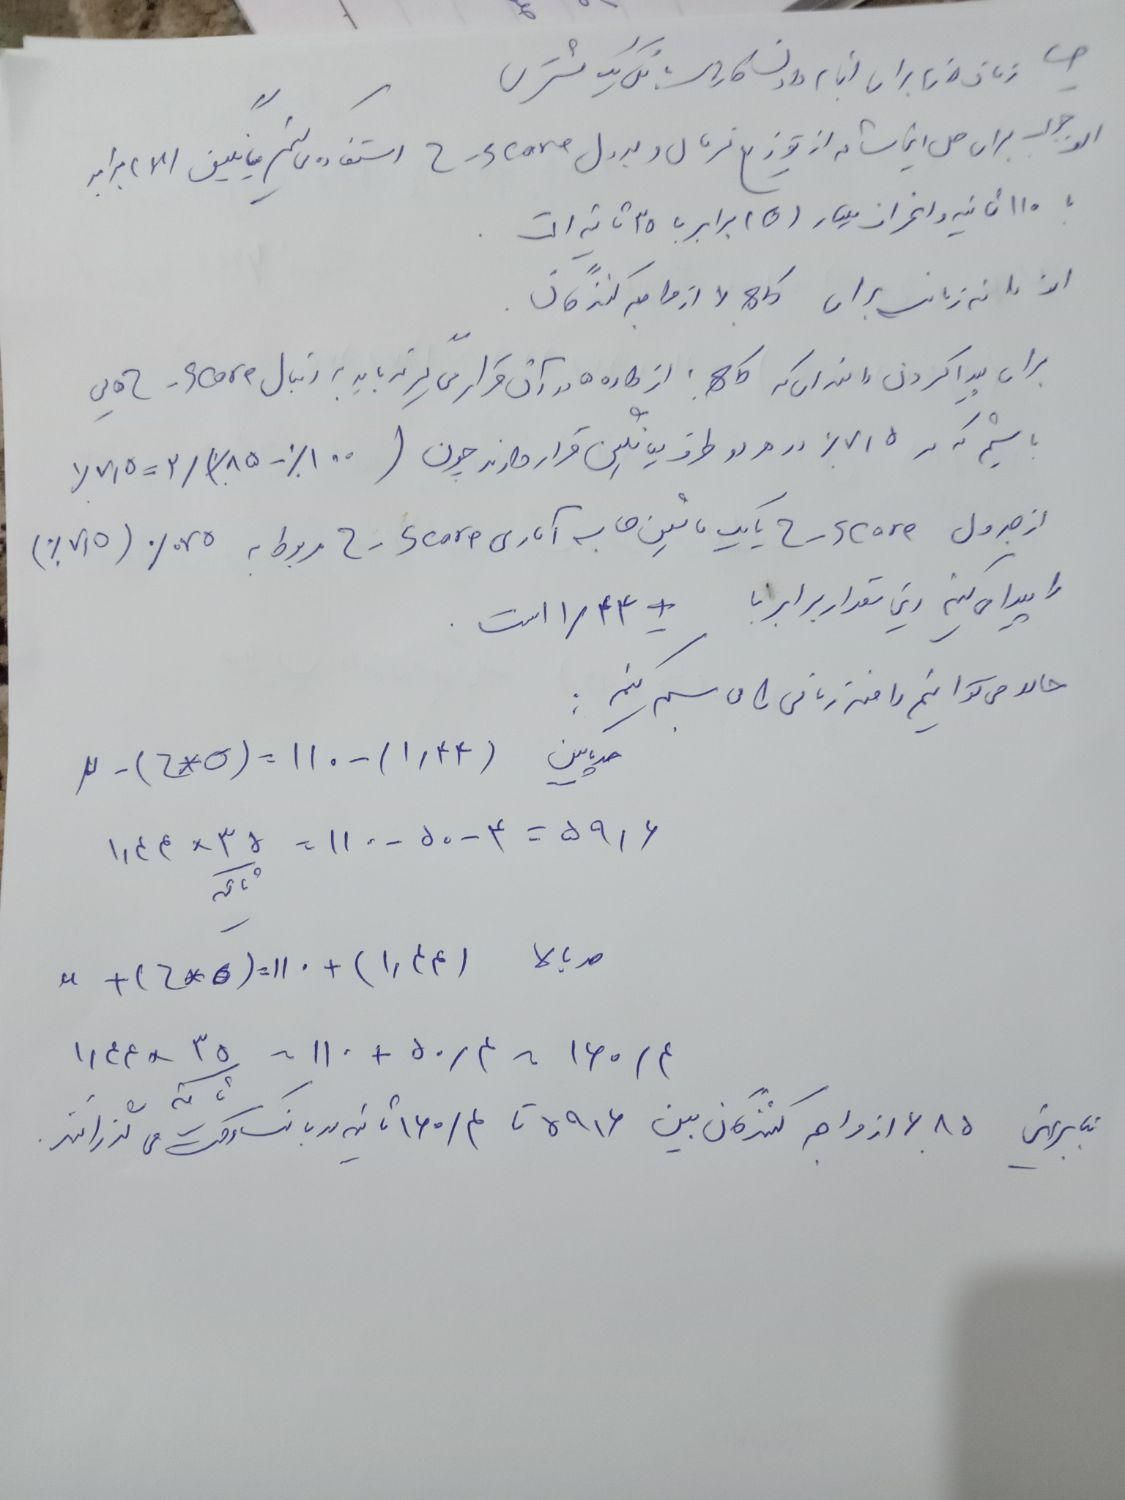 زمان لازم برای انجام دادن کار بانکی یک مشتری
الف جواب برای حل این مسئله از توزیع نرمال و جدول Z-score استفاده می‌کنیم میانگین (M) برابر
با ۱۱۰ ثانیه و انحراف معیار (σ) برابر با ۳۵ ثانیه است.
الف دامنه زمانی برای ۸۵٪ از مراجعه کنندگان.
برای پیدا کردن دامنه‌ای که ۸۵٪ از داده‌ها در آن قرار می‌گیرند باید به دنبال Z-score هایی
باشیم که در ۷٫۵٪ در هر دو طرف میانگین قرار دارند چون (۱۰۰٪-۸۵٪)/۲=۷٫۵٪
از جدول Z-score یا یک ماشین حساب آماری Z-score مربوط به ۰/۰۷۵ (۷٫۵٪)
را پیدا می‌کنیم این مقدار برابر با ± ۱/۴۴ است.
حالا می‌توانیم دامنه زمانی را محاسبه کنیم:
حد پایین μ-(Z*σ)=۱۱۰-(۱٫۴۴)
۱٫۴۴×۳۵ ثانیه = ۱۱۰-۵۰-۴=۵۹٫۶
حد بالا μ+(Z*σ)=۱۱۰+(۱٫۴۴)
۱٫۴۴×۳۵ ثانیه = ۱۱۰+۵۰/۴ = ۱۶۰/۴
بنابراین ۸۵٪ از مراجعه کنندگان بین ۵۹٫۶ تا ۱۶۰/۴ ثانیه در بانک وقت می گذرانند.